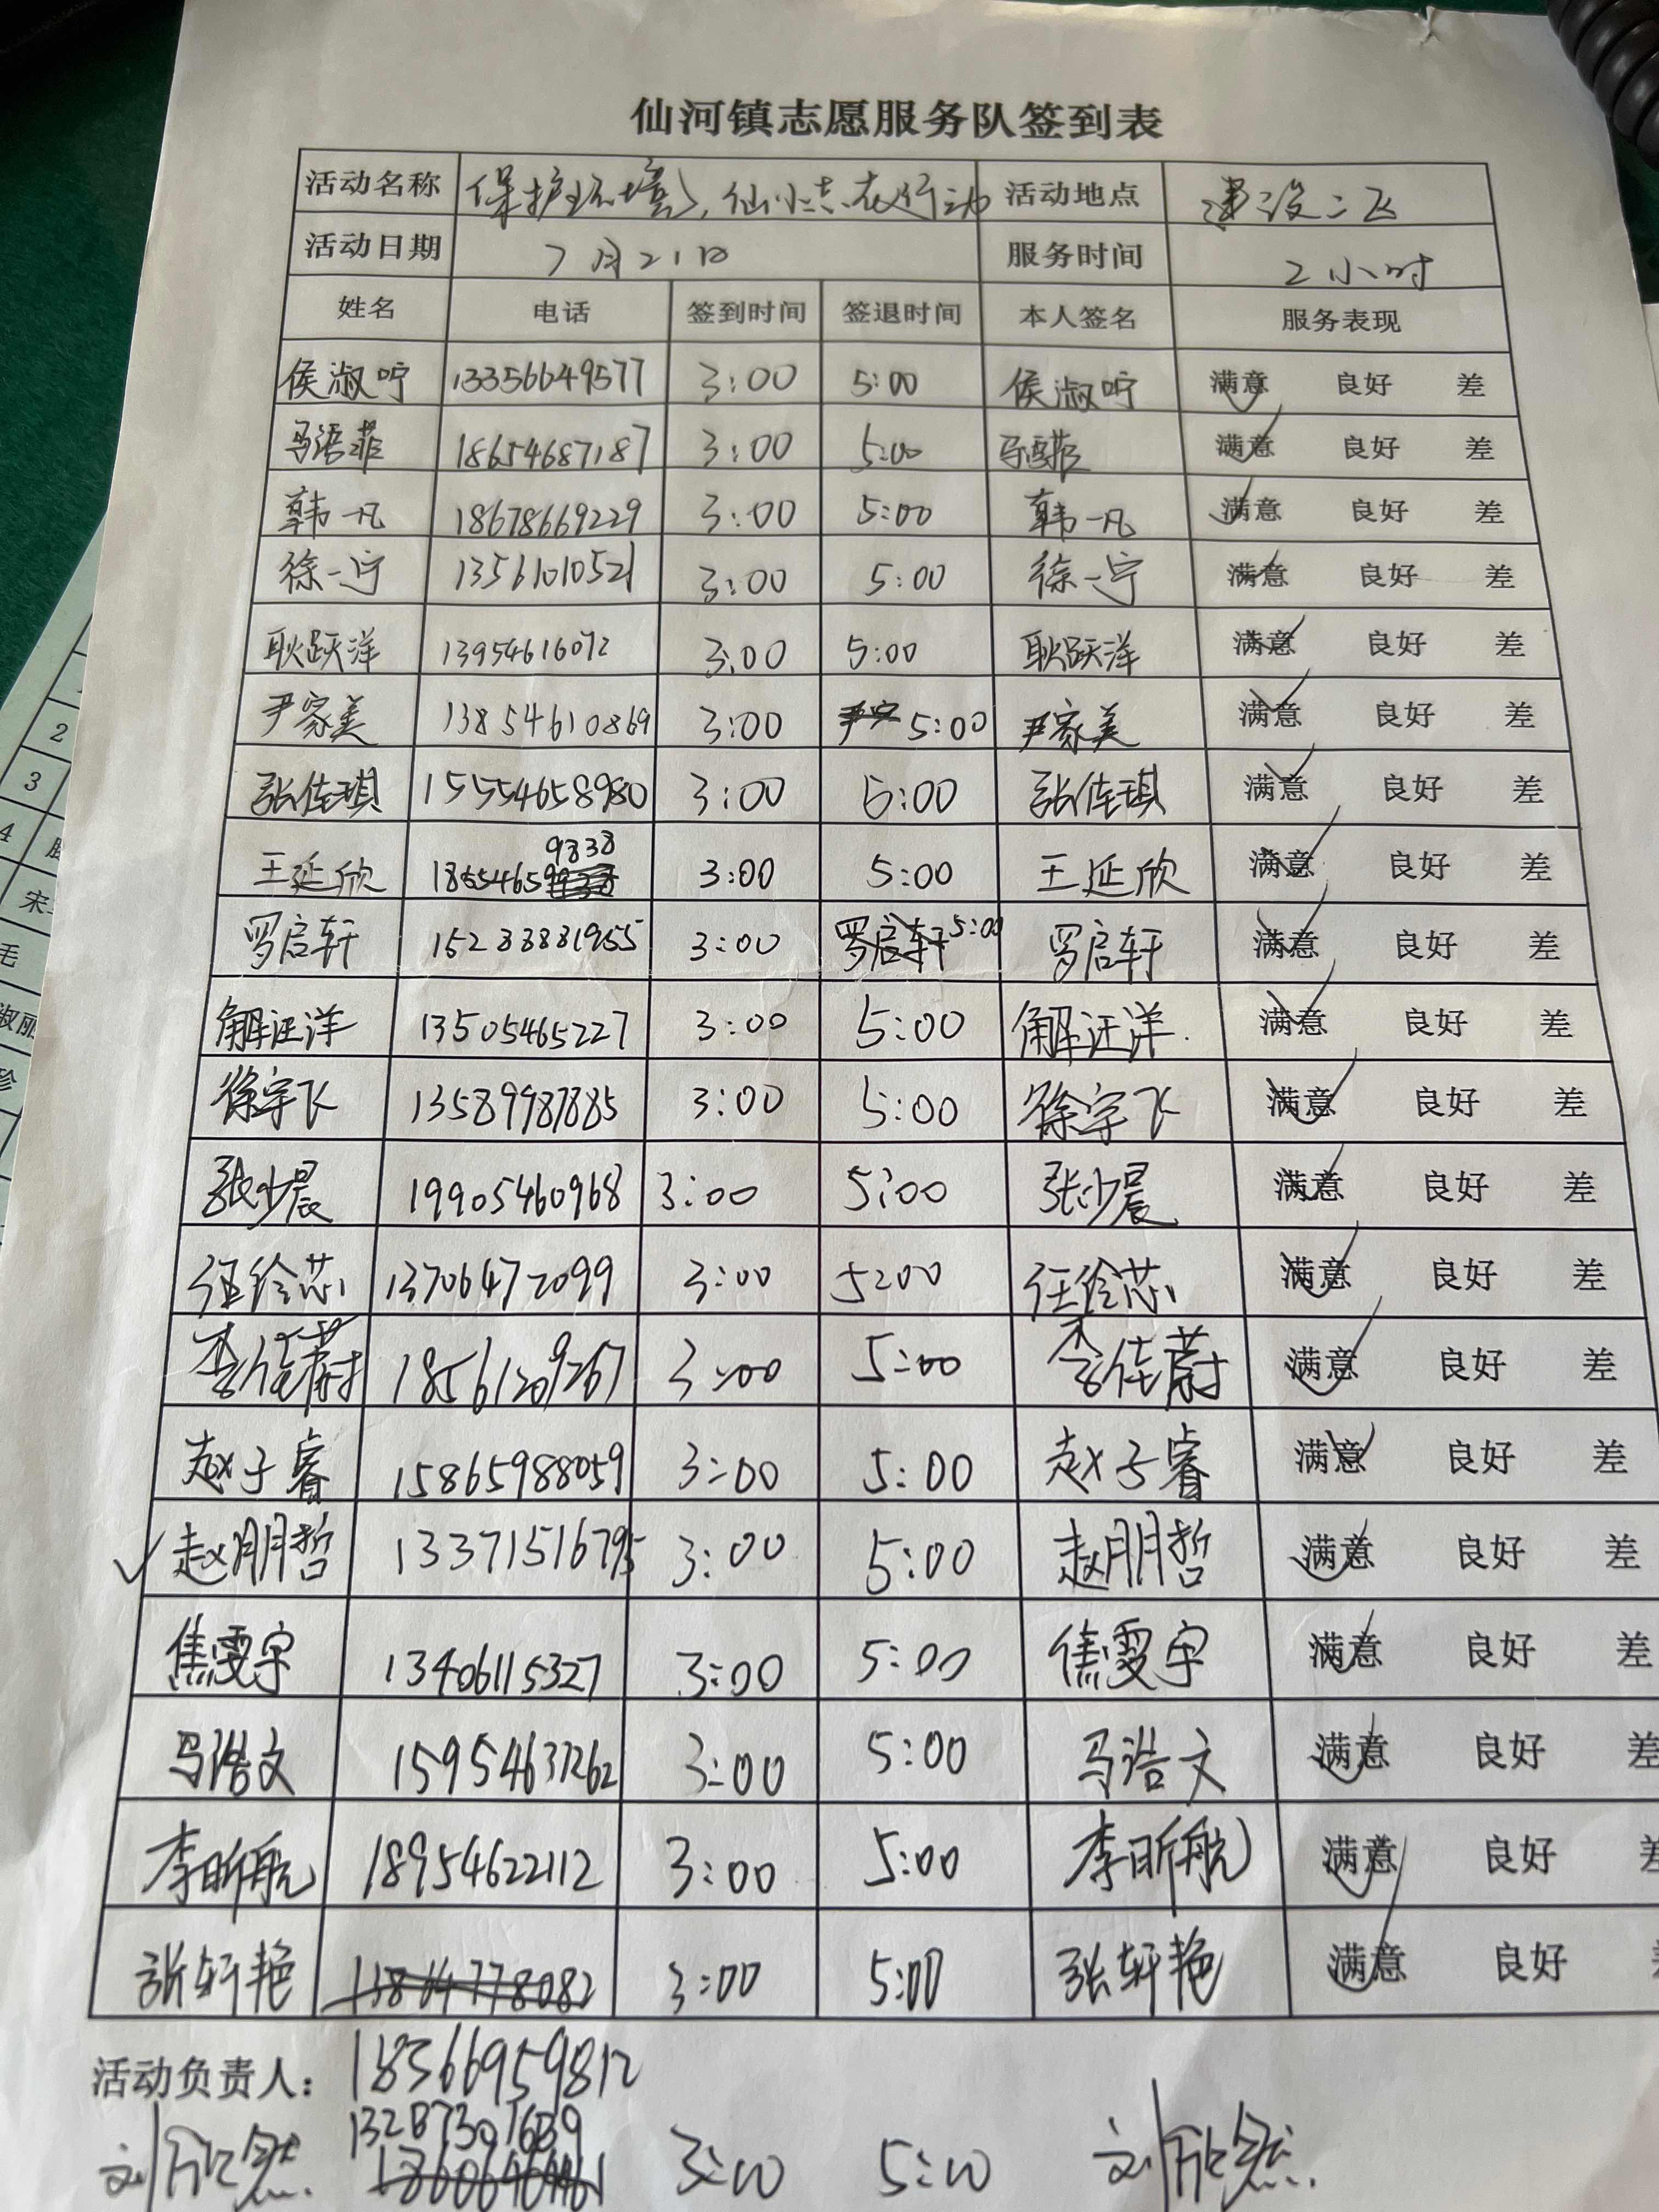 仙河镇志愿服务队签到表
活动名称 保护环境,仙小志在行动 活动地点 建设二区
活动日期 7月21日 服务时间 2小时
姓名 电话 签到时间 签退时间 本人签名 服务表现
侯淑咛 13356649577 3:00 5:00 侯淑咛 满意 良好 差
马语菲 18654687187 3:00 5:00 马语菲 满意 良好 差
韩一凡 18678669229 3:00 5:00 韩一凡 满意 良好 差
徐一宁 13561010521 3:00 5:00 徐一宁 满意 良好 差
耿跃洋 13954616072 3:00 5:00 耿跃洋 满意 良好 差
尹家美 13854610869 3:00 5:00 尹家美 满意 良好 差
张佳琪 15554658980 3:00 5:00 张佳琪 满意 良好 差
王延欣 18654659838 3:00 5:00 王延欣 满意 良好 差
罗启轩 15233881955 3:00 罗启轩 5:00 罗启轩 满意 良好 差
解汪洋 13505465227 3:00 5:00 解汪洋 满意 良好 差
徐宇飞 13589987885 3:00 5:00 徐宇飞 满意 良好 差
张少晨 19905460968 3:00 5:00 张少晨 满意 良好 差
任伶芯 13706472099 3:00 5:00 任伶芯 满意 良好 差
李佳蔚 18561209267 3:00 5:00 李佳蔚 满意 良好 差
赵子睿 15865988059 3:00 5:00 赵子睿 满意 良好 差
赵朋哲 13371516795 3:00 5:00 赵朋哲 满意 良好 差
焦雯宇 13406115327 3:00 5:00 焦雯宇 满意 良好 差
马浩文 15954637262 3:00 5:00 马浩文 满意 良好 差
李昕航 18954622112 3:00 5:00 李昕航 满意 良好 差
张轩艳 13864778082 3:00 5:00 张轩艳 满意 良好
活动负责人: 18366959812
刘欣然 13287301639 3:00 5:00 刘欣然